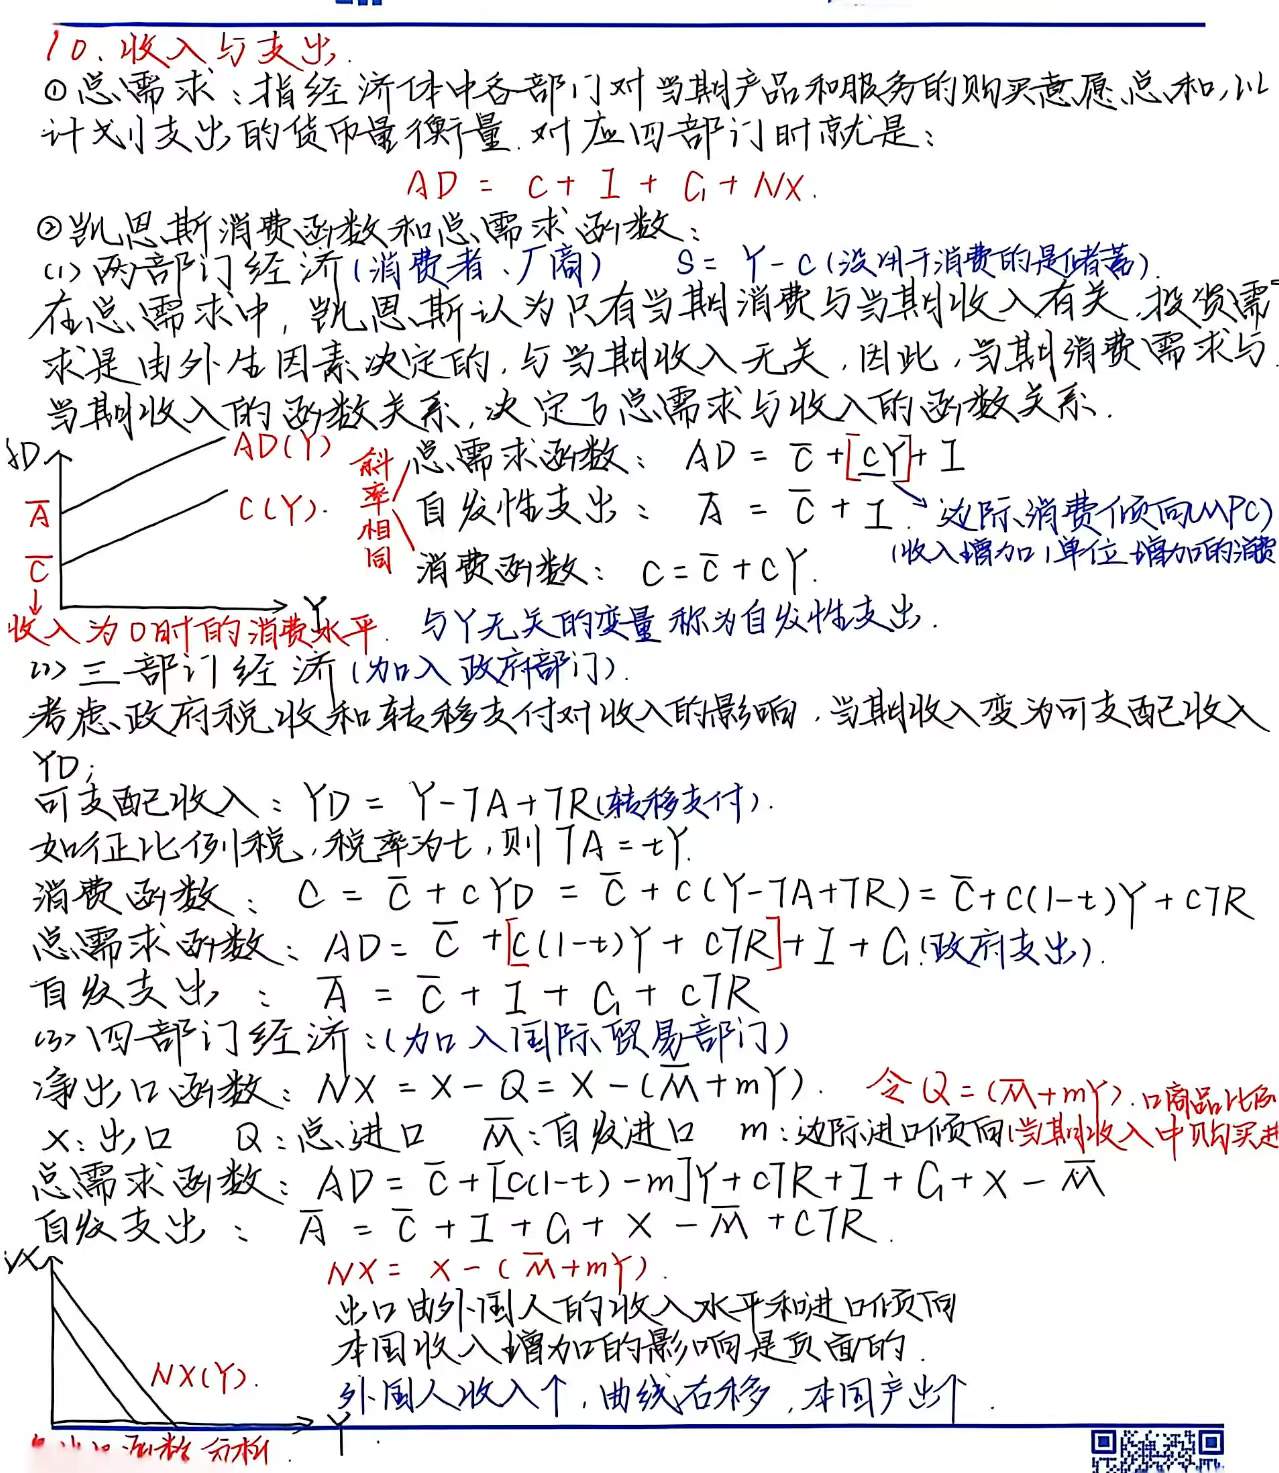 10. 收入与支出.
①总需求:指经济体中各部门对当期产品和服务的购买意愿总和,以
计划支出的货币量衡量.对应四部门时就是:
AD = C + I + G + NX.
②凯恩斯消费函数和总需求函数:
(1) 两部门经济(消费者、厂商) S = Y - C (没用于消费的是储蓄).
在总需求中,凯恩斯认为只有当期消费与当期收入有关.投资需
求是由外生因素决定的,与当期收入无关.因此,当期消费需求与
当期收入的函数关系,决定了总需求与收入的函数关系.
AD(Y) 斜率相同 总需求函数: AD = C̅ + [cY] + I
A̅ C(Y). 自发性支出: A̅ = C̅ + I. 边际消费倾向(MPC)
(收入增加1单位增加的消费
C̅ 消费函数: C = C̅ + cY.
Y
收入为0时的消费水平. 与Y无关的变量称为自发性支出.
(2) 三部门经济(加入政府部门).
考虑政府税收和转移支付对收入的影响,当期收入变为可支配收入
YD;
可支配收入: YD = Y - TA + TR(转移支付).
如征比例税,税率为t,则TA = tY.
消费函数: C = C̅ + cYD = C̅ + c(Y-TA+TR) = C̅ + c(1-t)Y + cTR
总需求函数: AD = C̅ + [c(1-t)Y + cTR] + I + G.(政府支出).
自发支出: A̅ = C̅ + I + G + cTR
(3) 四部门经济:(加入国际贸易部门)
净出口函数: NX = X - Q = X - (M̅ + mY). 令Q = (M̅ + mY).
口商品比例
X:出口 Q:总进口 M̅:自发进口 m:边际进口倾向(当期收入中购买进
总需求函数: AD = C̅ + [c(1-t) - m]Y + cTR + I + G + X - M̅
自发支出: A̅ = C̅ + I + G + X - M̅ + cTR.
NX = X - (M̅ + mY).
出口由外国人的收入水平和进口倾向
本国收入增加的影响是负面的.
NX(Y).
外国人收入↑,曲线右移,本国产出↑.
Y
函数分析.